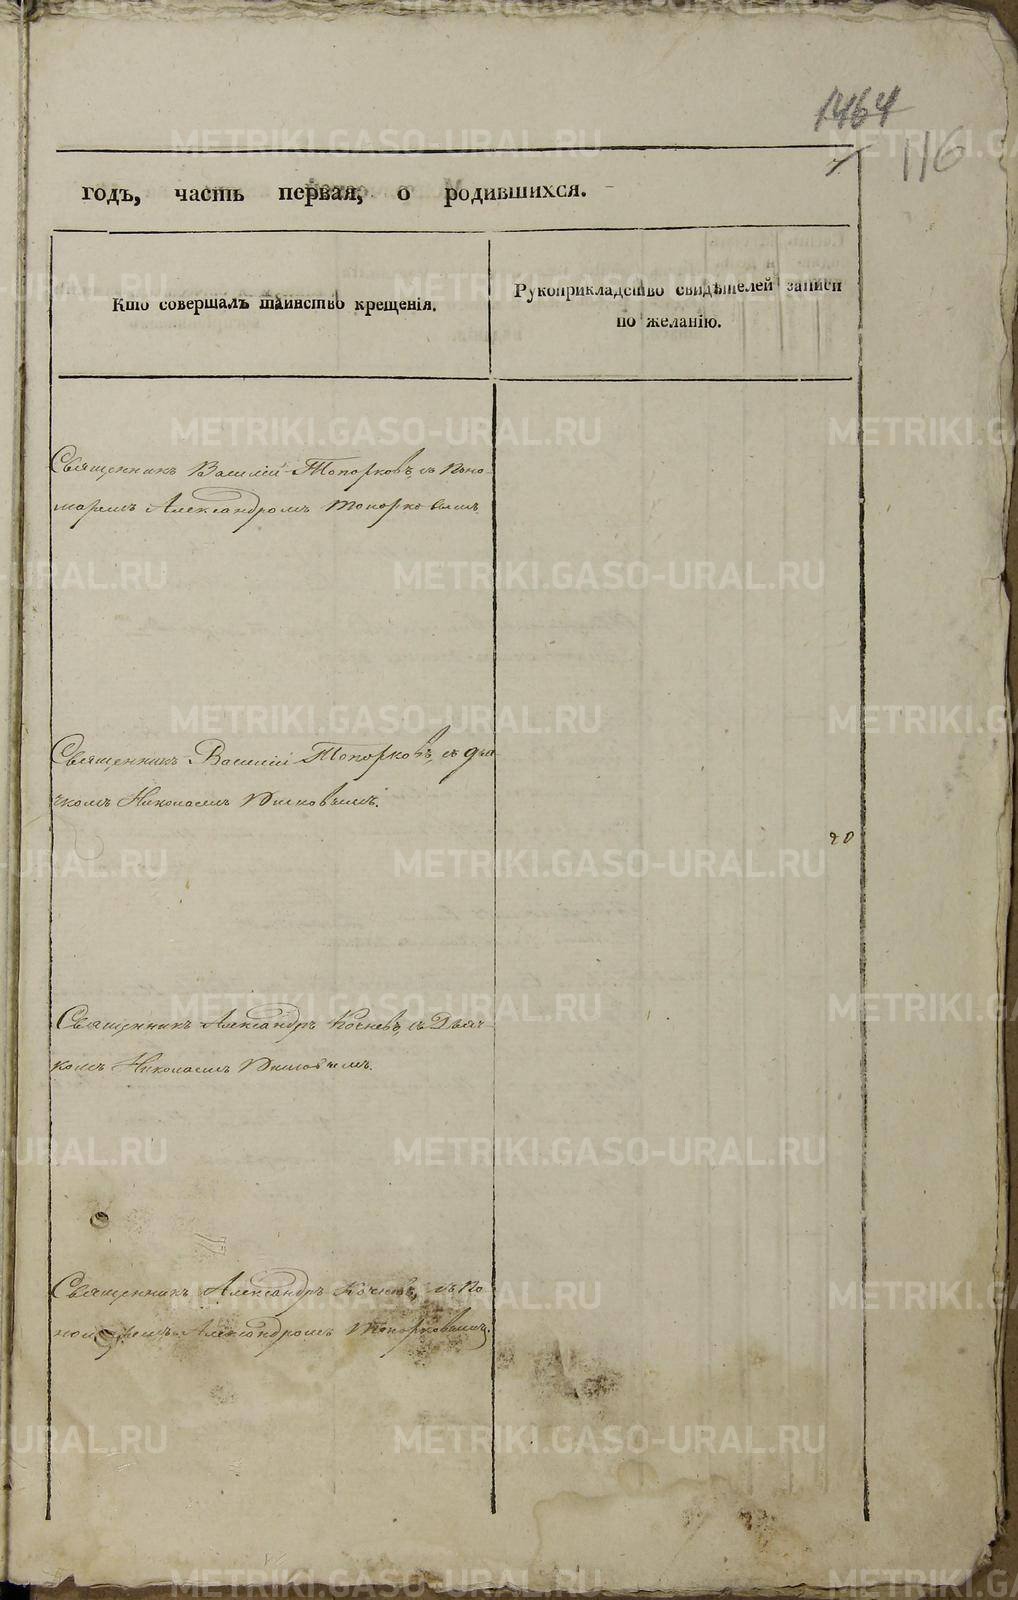 1464
116
годъ, часть первая, о родившихся.
Кто совершалъ таинство крещенія.
Рукоприкладство свидѣтелей записи
по желанію.
Священникъ Василій Топорковъ, съ Поно-
маремъ Александромъ Топорковымъ.
Священникъ Василій Топорковъ, съ дья-
чкомъ Николаемъ
20
Священникъ Александръ Кочневъ, съ Дьяч-
комъ Николаемъ
Священникъ Александръ Кочневъ, съ По-
номаремъ Александромъ Топорковымъ.
METRIKI.GASO-URAL.RU